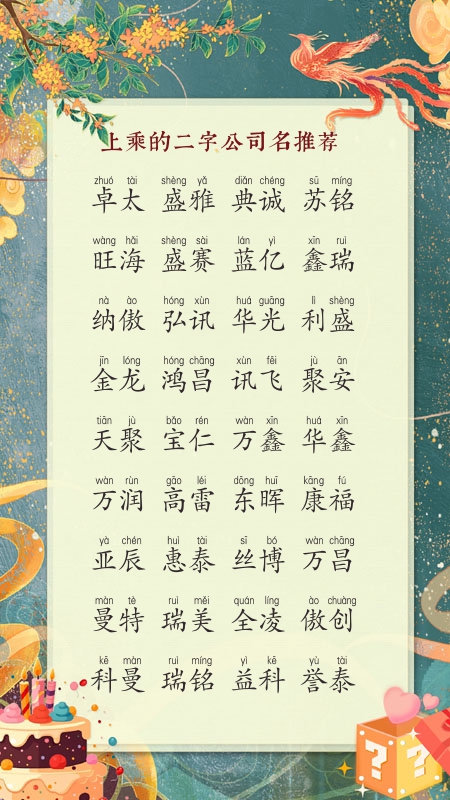 上乘的二字公司名推荐
zhuó tài shèng yǎ diǎn chéng sū míng
卓太 盛雅 典诚 苏铭
wàng hǎi shèng sài lán yì xīn ruì
旺海 盛赛 蓝亿 鑫瑞
nà ào hóng xùn huá guāng lì shèng
纳傲 弘讯 华光 利盛
jīn lóng hóng chāng xùn fēi jù ān
金龙 鸿昌 讯飞 聚安
tiān jù bǎo rén wàn xīn huá xīn
天聚 宝仁 万鑫 华鑫
wàn rùn gāo léi dōng huī kāng fú
万润 高雷 东晖 康福
yà chén huì tài sī bó wàn chāng
亚辰 惠泰 丝博 万昌
màn tè ruì měi quán líng ào chuàng
曼特 瑞美 全凌 傲创
kē màn ruì míng yì kē yù tài
科曼 瑞铭 益科 誉泰
? ?